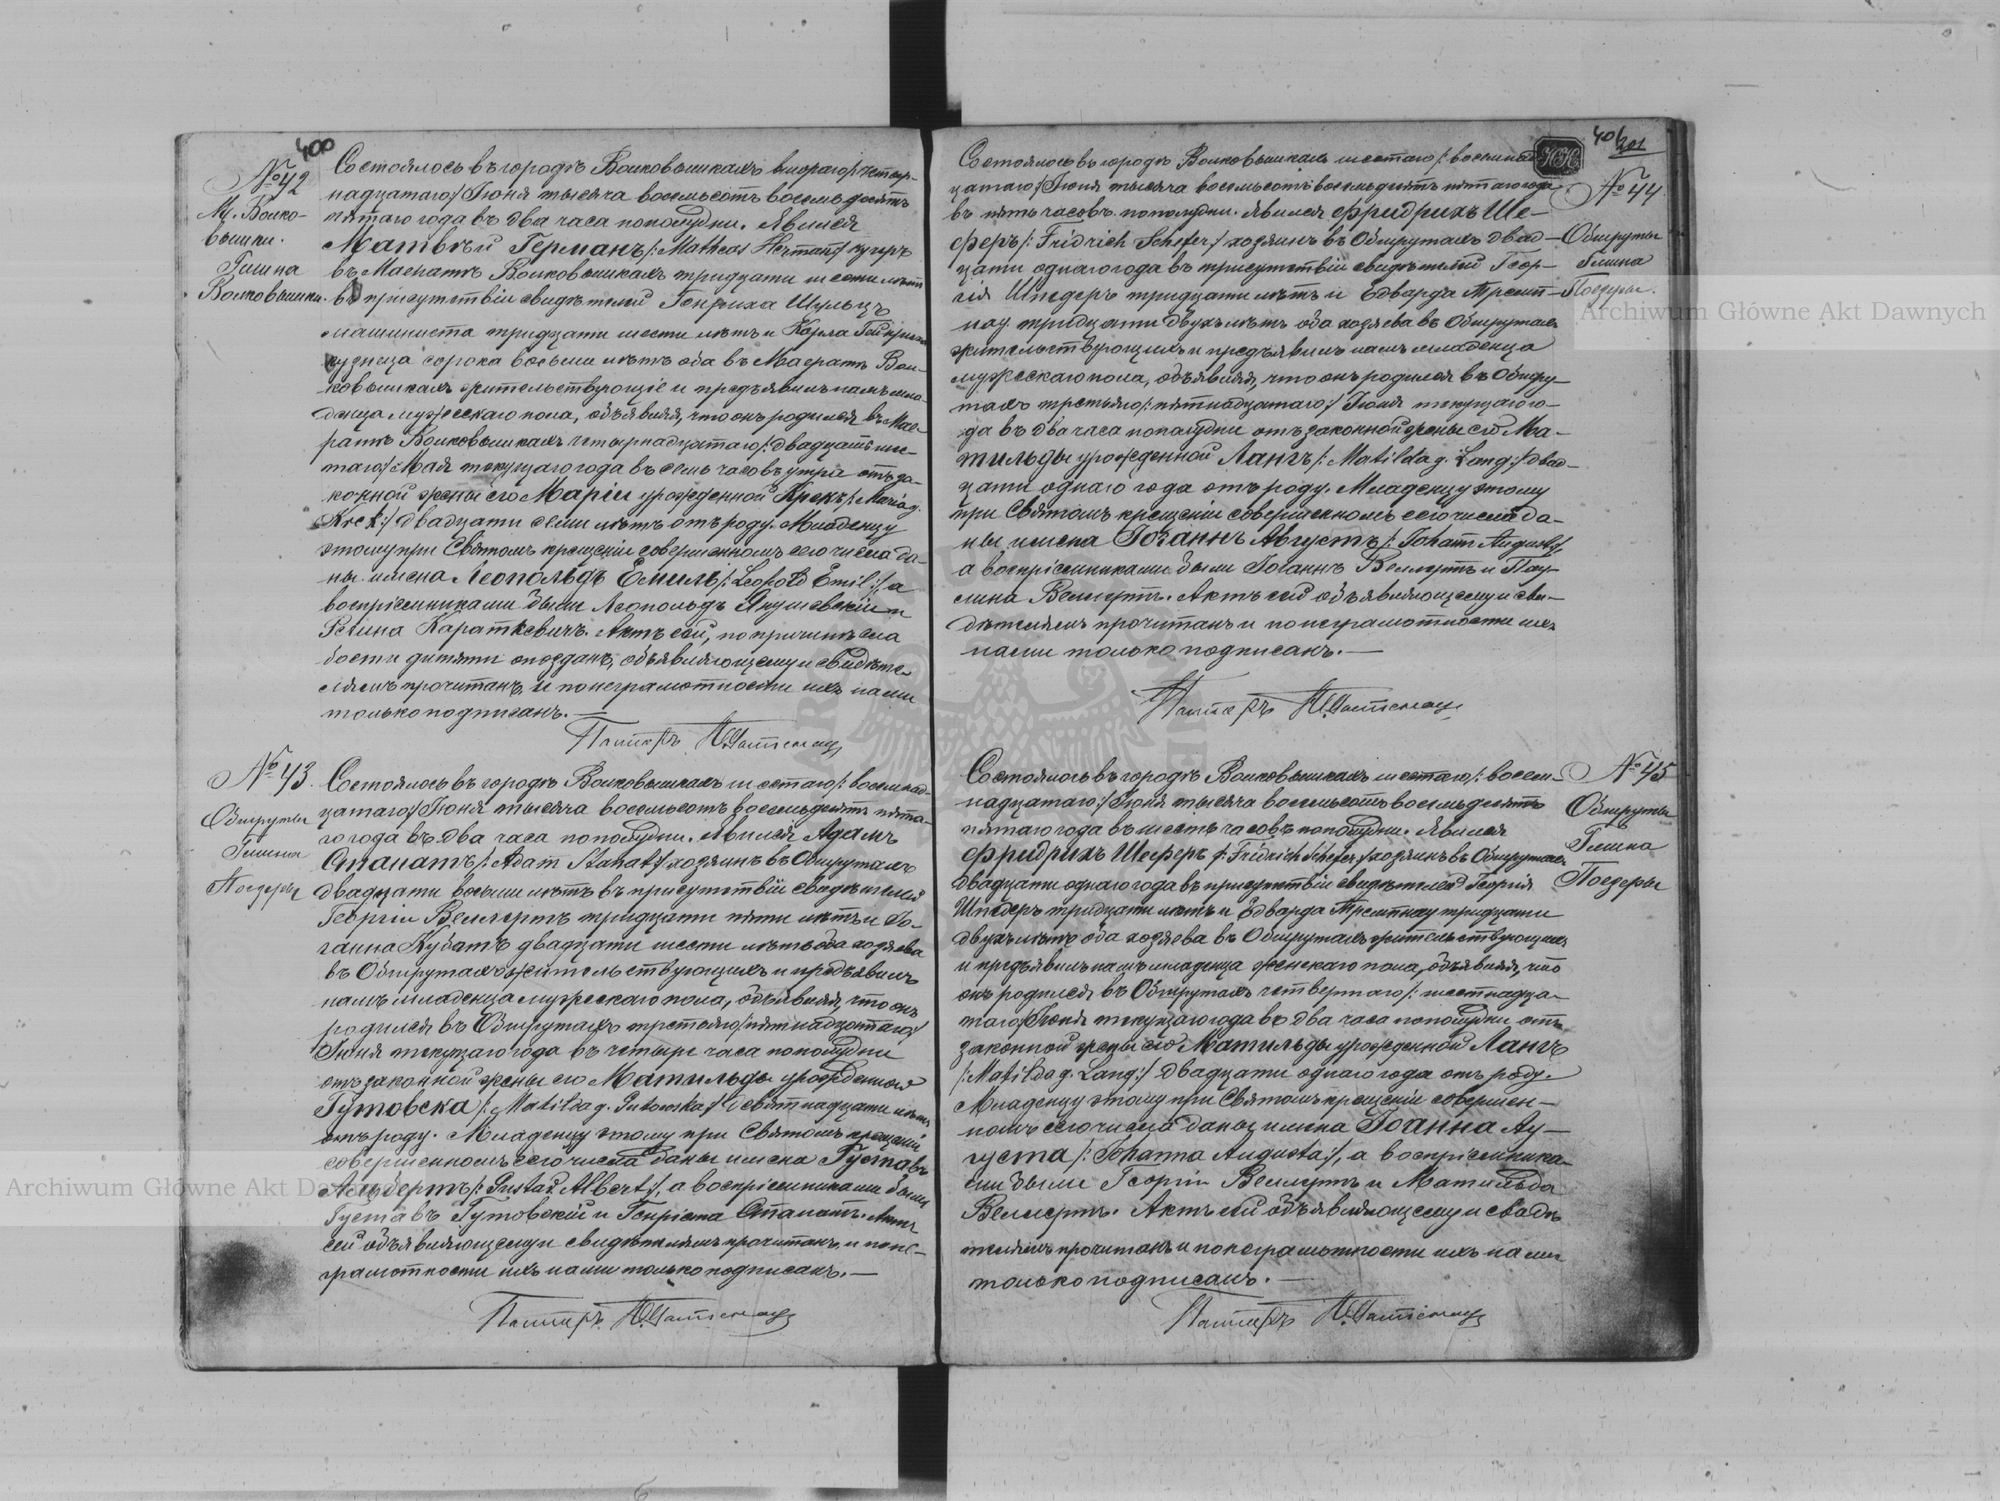 400
№ 42
М. Волко-
вышки.
Гмина
Волковышки.
Состоялось въ городѣ Волковышкахъ втораго /: четыр-
надцатаго :/ Іюня тысяча восемьсотъ восемьдесятъ
пятаго года въ два часа пополудни. Явился
Матвѣй Германъ /: Matheas Herman :/ кучеръ
въ Маентѣ Волковышкахъ тридцати шести лѣтъ
въ присутствіи свидѣтелей Генриха Шульцъ
машиниста тридцати шести лѣтъ и Карла
кузнеца сорока восьми лѣтъ оба въ Маентѣ Вол-
ковышкахъ жительствующіе и предъявилъ намъ мла-
денца мужескаго пола, объявляя, что онъ родился въ Мае-
нтѣ Волковышкахъ четырнадцатаго /: двадцать шес-
таго :/ Мая текущаго года въ семь часовъ утра отъ за-
конной жены его Маріи урожденной Крекъ /: Maria g.
Krek :/ двадцати семи лѣтъ отъ роду. Младенцу
этому при Святомъ крещеніи совершенномъ сего числа да-
ны имена Леопольдъ Емиль /: Leopold Emil :/, а
воспріемниками были Леопольдъ Янушевскій и
Регина Караткевичъ. Актъ сей, по причинѣ сла
бости дитяти опозданъ, объявляющему и свидѣте-
лямъ прочитанъ и по неграмотности ихъ нами
только подписанъ. —
Пасторъ
№ 43.
Обшруты
Гмина
Поезеры
Состоялось въ городѣ Волковышкахъ шестаго /: восемнад-
цатаго :/ Іюня тысяча восемьсотъ восемьдесятъ пята-
го года въ два часа пополудни. Явился Адамъ
Станатъ /: Adam Stanat :/ хозяинъ въ Обшрутахъ
двадцати восьми лѣтъ въ присутствіи свидѣтелей
Георгіи Веллертъ тридцати пяти лѣтъ и Іо-
ганна Кубатъ двадцати шести лѣтъ оба хозяева
въ Обшрутахъ жительствующихъ и предъявилъ
намъ младенца мужескаго пола, объявляя, что онъ
родился въ Обшрутахъ третьяго /: пятнадцатаго :/
Іюня текущаго года въ четыре часа пополудни
отъ законной жены его Матильды урожденной
Гутовска /: Matilda g. Gutowska :/ девятнадцати лѣтъ
отъ роду. Младенцу этому при Святомъ крещеніи
совершенномъ сего числа даны имена Густавъ
Альбертъ /: Gustav Albert :/, а воспріемниками были
Густавъ Гутовскій и Генріета Станатъ. Актъ
сей объявляющему и свидѣтелямъ прочитанъ и по не-
грамотности ихъ нами только подписанъ. —
Пасторъ
401
201
№ 44.
Обшруты
Гмина
Поезеры.
Состоялось въ городѣ Волковышкахъ шестаго /: восемнад-
цатаго :/ Іюня тысяча восемьсотъ восемьдесятъ пятаго года
въ пять часовъ пополудни. Явился Фридрихъ Ше-
феръ /: Fridrich Schefer :/ хозяинъ въ Обшрутахъ двад-
цати однаго года въ присутствіи свидѣтелей Геор-
гія Шпедеръ тридцати лѣтъ и Едварда
тридцати двухъ лѣтъ оба хозяева въ Обшрутахъ
жительствующихъ и предъявилъ намъ младенца
мужескаго пола, объявляя, что онъ родился въ Обшру-
тахъ третьяго /: пятнадцатаго :/ Іюня текущаго го-
да въ два часа пополудни отъ законной жены его Ма-
тильды урожденной Лангъ /: Matilda g. Lang :/ двад-
цати однаго года отъ роду. Младенцу этому
при Святомъ крещеніи совершенномъ сего числа да-
ны имена Іоганнъ Августъ /: Johann August :/
а воспріемниками были Іоганнъ Веллертъ и Пау-
лина Веллертъ. Актъ сей объявляющему и сви-
дѣтелямъ прочитанъ и по неграмотности ихъ
нами только подписанъ. —
Пасторъ
№ 45
Обшруты
Гмина
Поезеры
Состоялось въ городѣ Волковышкахъ шестаго /: восем-
надцатаго :/ Іюня тысяча восемьсотъ восемьдесятъ
пятаго года въ шесть часовъ пополудни. Явился
Фридрихъ Шеферъ /: Fridrich Schefer :/ хозяинъ въ Обшрутахъ
двадцати однаго года въ присутствіи свидѣтелей Георгія
Шпедеръ тридцати лѣтъ и Едварда тридцати
двухъ лѣтъ оба хозяева въ Обшрутахъ жительствующихъ
и предъявилъ намъ младенца женскаго пола, объявляя, что
онъ родился въ Обшрутахъ четвертаго /: шестнадца-
таго :/ Іюня текущаго года въ два часа пополудни отъ
законной жены его Матильды урожденной Лангъ
/: Matilda g. Lang :/ двадцати однаго года отъ роду.
Младенцу этому при Святомъ крещеніи совершен-
номъ сего числа даны имена Іоанна Ау-
густа /: Johanna Augusta :/, а воспріемника-
ми были Георгіи Веллертъ и Матильда
Веллертъ. Актъ сей объявляющему и свидѣ
телямъ прочитанъ и по неграмотности ихъ нами
только подписанъ. —
Пасторъ
Archiwum Główne Akt Dawnych
Archiwum Główne Akt Dawnych